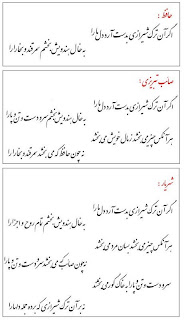 حافظ :
اگر آن ترک شیرازی بدست آرد دل ما را
به خال هندویش بخشم سمرقند و بخارا را
صائب تبریزی :
اگر آن ترک شیرازی بدست آرد دل ما را
به خال هندویش بخشم سر و دست و تن و پا را
هر آنکس چیز می بخشد ز مال خویش می بخشد
نه چون حافظ که می بخشد سمرقند و بخارا را
شهریار :
اگر آن ترک شیرازی بدست آرد دل ما را
به خال هندویش بخشم تمام روح و اجزا را
هر آنکس چیز می بخشد بسان مرد می بخشد
نه چون صائب که می بخشد سر و دست و تن و پا را
سر و دست و تن و پا را به خاک گور می بخشند
نه بر آن ترک شیرازی که برده جمله دلها را